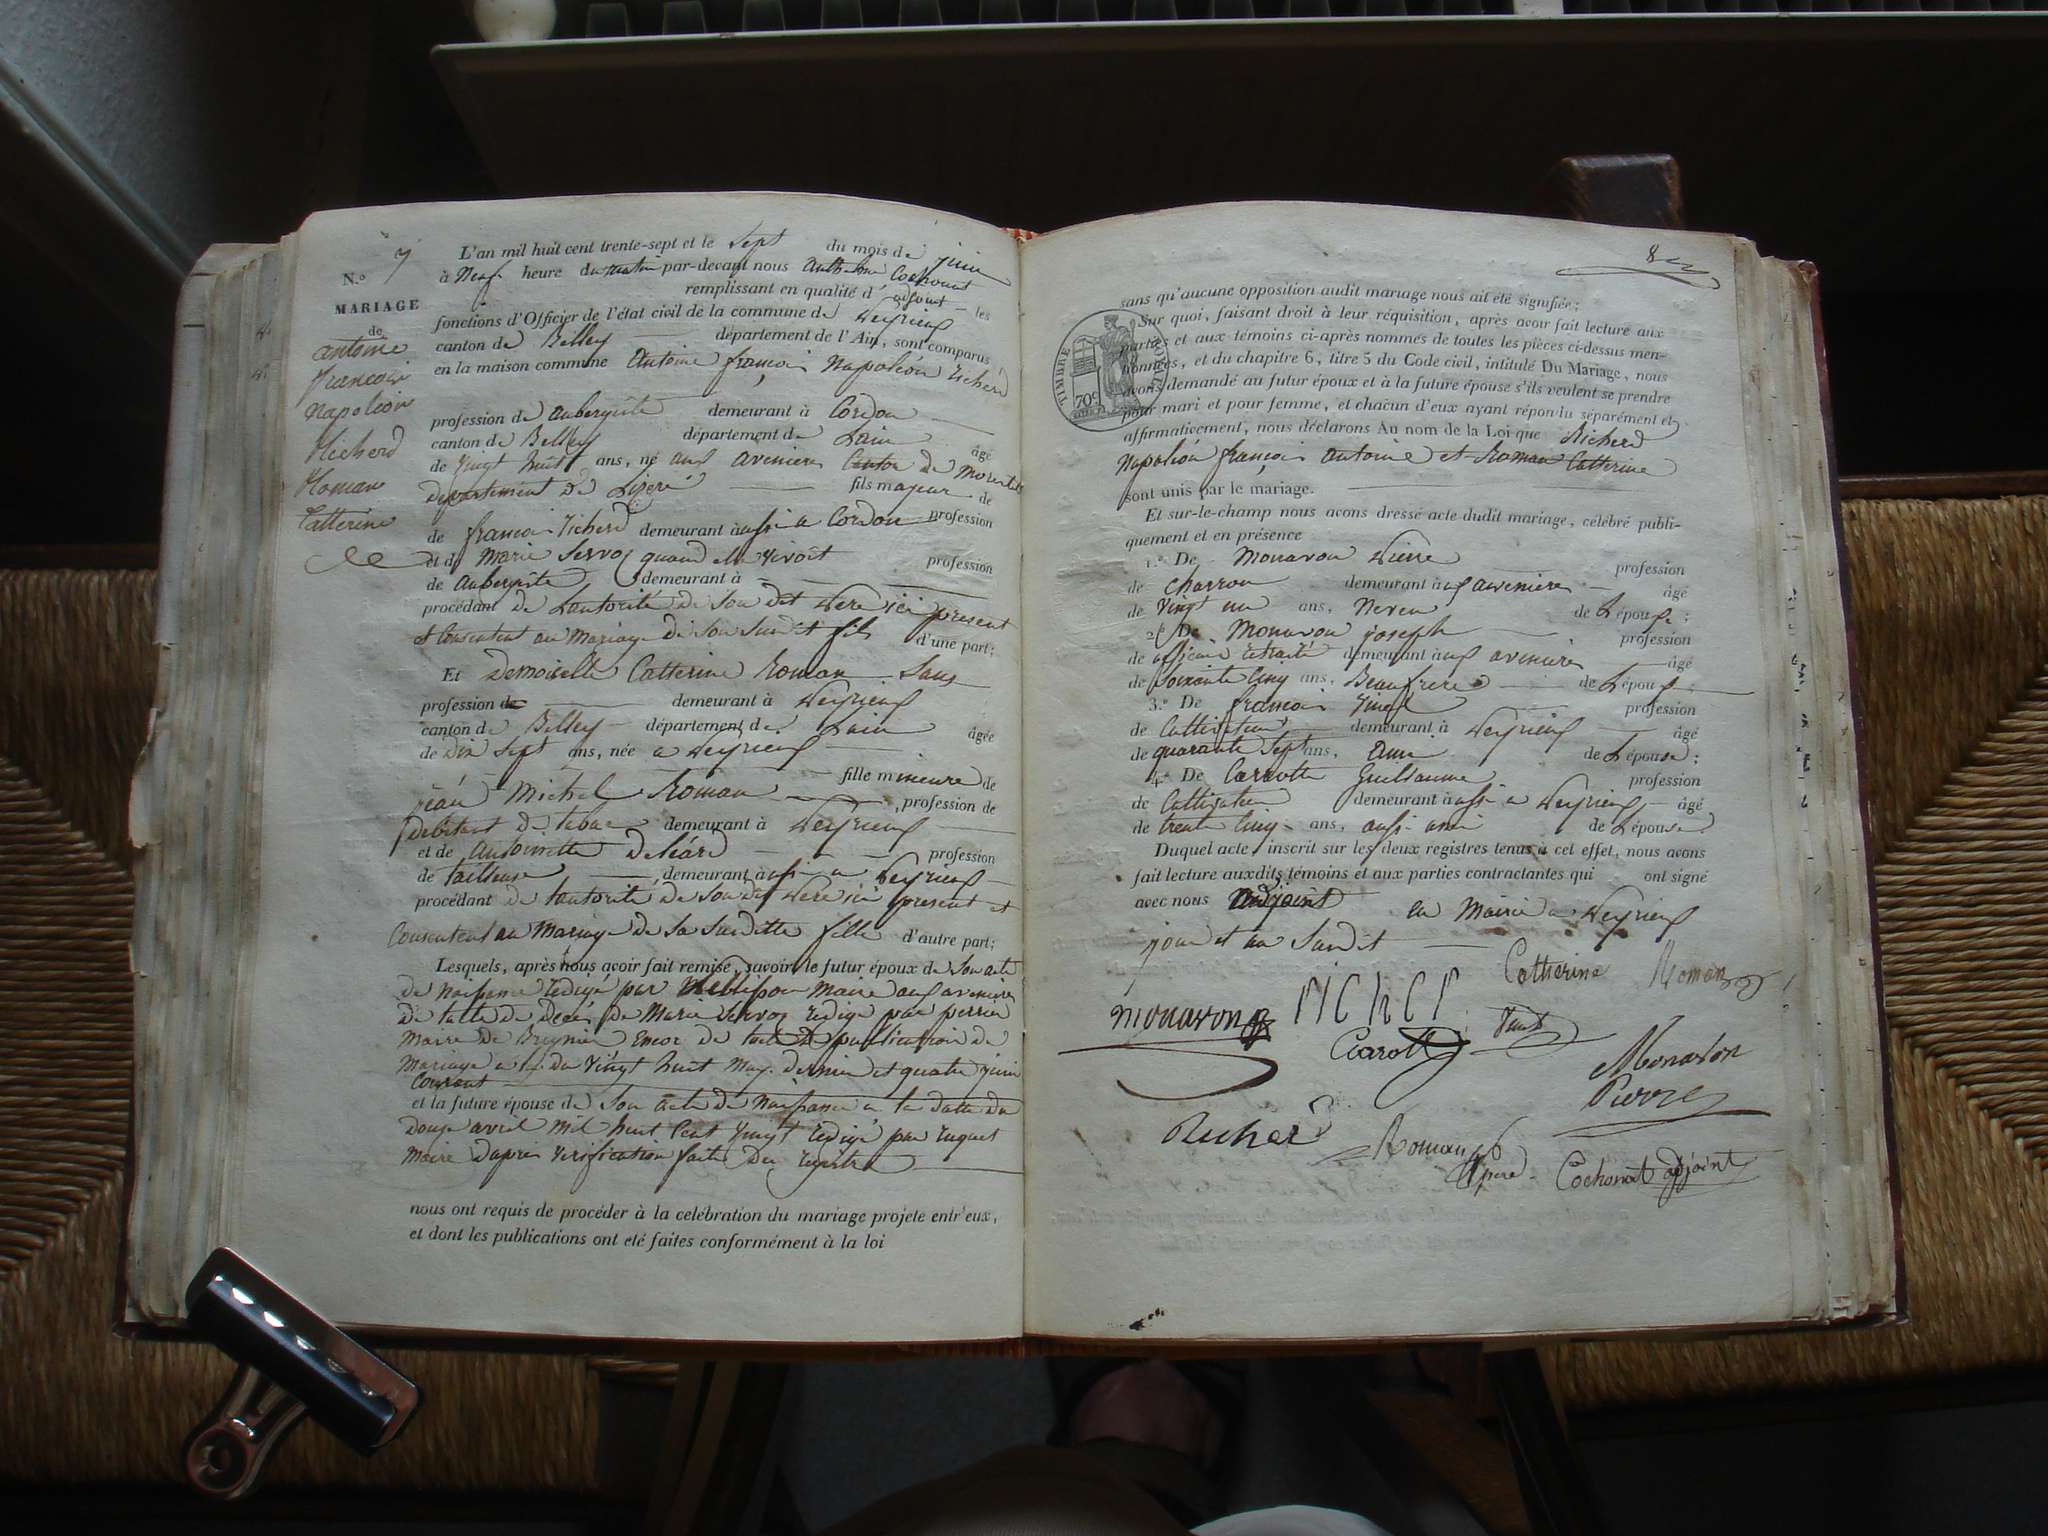 N.o 7
MARIAGE
de
antoine
françois
napoléon
Richerd
Roman
Catterine
L'an mil huit cent trente-sept et le sept du mois de juin
à neuf heure du matin par-devant nous Anthelme Cochonat
remplissant en qualité d'adjoint les
fonctions d'Officier de l'état civil de la commune de Peyrieux
canton de Belley département de l'Ain, sont comparus
en la maison commune Antoine françois Napoléon Richerd
profession de aubergiste demeurant à Cordon
canton de Belley département de Lain âgé
de vingt huit ans, né aux avenieres Canton de Morestel
departement de Lizere fils majeur de
de françois Richerd demeurant aussi a Cordon profession
et de Marie Servoz quand elle vivoit profession
de aubergiste demeurant à
procédant de Lautorité de son dit Pere ici present
et Consentent au Mariage de son susdit fils d'une part;
Et Demoiselle Catterine Roman Sans
profession de demeurant à Peyrieux
canton de Belley département de Lain âgée
de dix sept ans, née a Peyrieux
fille mineure de
jean Michel Roman profession de
debitant de tabac demeurant à Peyrieux
et de antoinette profession
de tailleuse demeurant aussi a Peyrieux
procédant de Lautorité de son dit Pere ici present et
Consentent au Mariage de sa susditte fille d'autre part;
Lesquels, après nous avoir fait remise, savoir le futur époux de son acte
de Naissance redigé par maire aux avenieres
de lacte de Decès de Marie Servoz redigé par perrin
Maire de Bregnier encor de lacte de publication de
Mariage du vingt huit May dernier et quatre juin
Courant
et la future épouse de son acte de Naissance a la datte du
douze avril mil huit Cent vingt redigé par
Maire dapres verification faite du registre
nous ont requis de procéder à la celébration du mariage projete entr'eux,
et dont les publications ont eté faites conformément à la loi
8
TIMBRE ROYAL
709
sans qu'aucune opposition audit mariage nous ait été signifiée;
Sur quoi, faisant droit à leur réquisition, après avoir fait lecture aux
parties et aux témoins ci-après nommés de toutes les pièces ci-dessus men-
tionnées, et du chapitre 6, titre 5 du Code civil, intitulé Du Mariage, nous
avons demandé au futur époux et à la future épouse s'ils veulent se prendre
pour mari et pour femme, et chacun d'eux ayant répondu séparément et
affirmativement, nous déclarons Au nom de la Loi que Richerd
Napoléon françois antoine et Roman Catterine
sont unis par le mariage.
Et sur-le-champ nous avons dressé acte dudit mariage, célébré publi-
quement et en présence
1.o De Monavon Pierre profession
de Charron demeurant aux avenieres âgé
de vingt un ans, neveu de Lépouse;
2.o De Monavon joseph profession
de officier retraité demeurant aux avenieres âgé
de soixante Cinq ans, Beaufrere de Lépouse;
3.o De françois profession
de Cultivateur demeurant à Peyrieux âgé
de quarante sept ans, ami de Lépouse;
4.o De Carrotte Guillaume profession
de Cultivateur demeurant aussi a Peyrieux âgé
de trente Cinq ans, aussi ami de Lépouse
Duquel acte, inscrit sur les deux registres tenus à cet effet, nous avons
fait lecture auxdits témoins et aux parties contractantes qui ont signé
avec nous adjoint en Mairie a Peyrieux
jour et an susdit
Catherine Roman
monavon Richer
Carott
Monavon
Pierre
Richer
Roman
pere
Cochonat adjoint